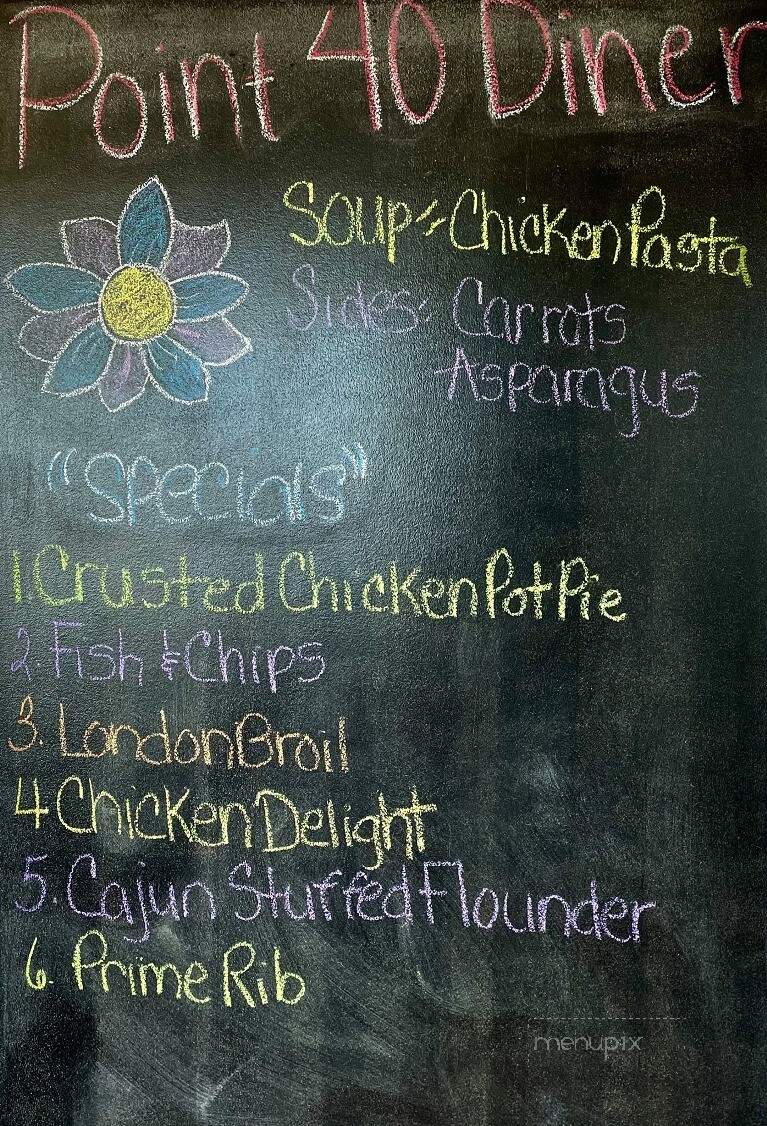 Point 40 Diner
Soup: Chicken Pasta
Sides: Carrots
Asparagus
"Specials"
1. Crusted Chicken Pot Pie
2. Fish & Chips
3. London Broil
4 Chicken Delight
5. Cajun Stuffed Flounder
6. Prime Rib
menupix